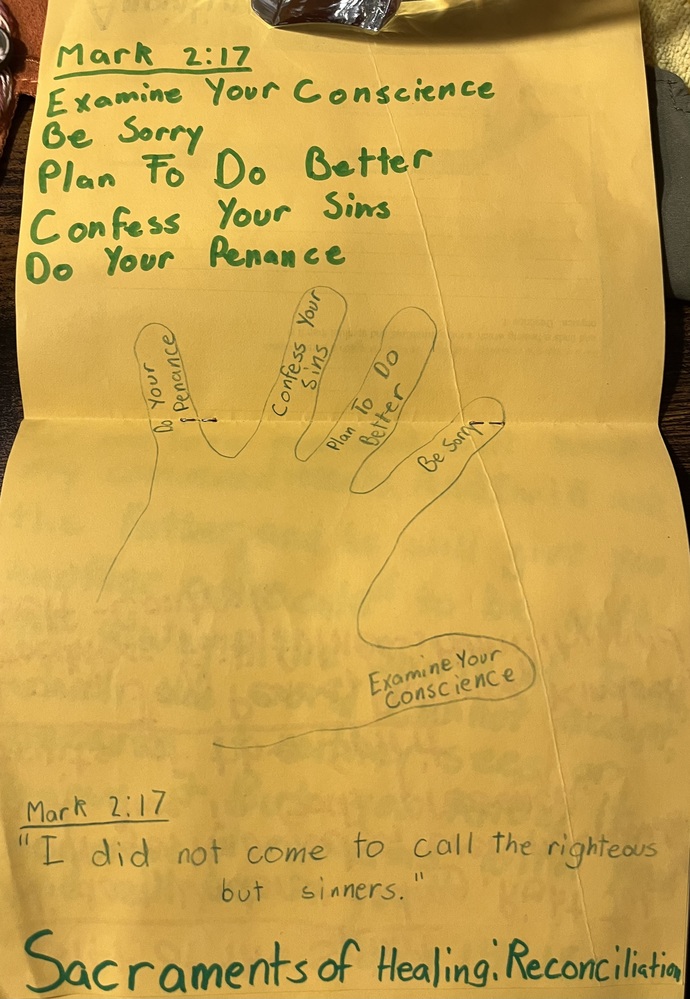 Mark 2:17
Examine Your Conscience
Be Sorry
Plan To Do Better
Confess Your Sins
Do Your Penance
Do Your
Penance
Confess Your
Sins
Plan To Do
Better
Be Sorry
Examine Your
Conscience
Mark 2:17
"I did not come to call the righteous
but sinners."
Sacraments of Healing: Reconciliation